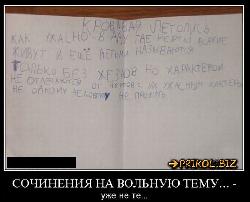 КРОВАВАЯ ЛЕТОПИСЬ
КАК УЖАСНО В АДУ ГДЕ ЧЕРТИ ВСЯКИЕ
ЖИВУТ И ЕЩЁ ВЕДЬМЫ НАЗЫВАЮТСЯ
ТОЛЬКО БЕЗ ХВОСТОВ НО ХАРАКТЕРОМ
НЕ ОТЛИЧАЮТСЯ ОТ ЧЕРТОВ УЖАСНЫМ
НЕ ОДНОМУ ЧЕЛОВЕКУ НЕ
PRIKOL.BIZ
СОЧИНЕНИЯ НА ВОЛЬНУЮ ТЕМУ... -
уже не те...